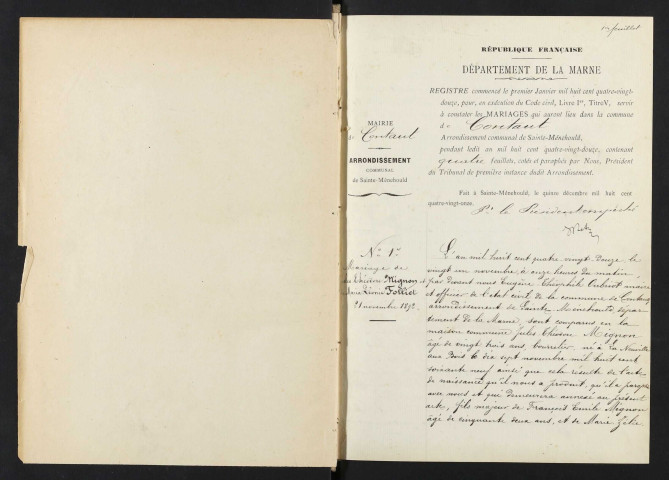 1er feuillet
RÉPUBLIQUE FRANÇAISE
DÉPARTEMENT DE LA MARNE
REGISTRE commencé le premier Janvier mil huit cent quatre-vingt-
douze, pour, en exécution du Code civil, Livre Ier, Titre V, servir
à constater les MARIAGES qui auront lieu dans la commune
de Contaut
Arrondissement communal de Sainte-Ménehould,
pendant ledit an mil huit cent quatre-vingt-douze, contenant
quatre feuillets, cotés et paraphés par Nous, Président
du Tribunal de première instance dudit Arrondissement.
Fait à Sainte-Ménehould, le quinze décembre mil huit cent
quatre-vingt-onze.
Pr le Président empêché
MAIRIE
de Contaut
ARRONDISSEMENT
communal
de Sainte-Ménehould
No 1er
Mariage de
Mignon
et
Follet
21 novembre 1892
L'an mil huit cent quatre vingt douze le
vingt un novembre à onze heures du matin
par devant nous Eugène Théophile maire
et officier de l'état civil de la commune de Contaut
arrondissement de Sainte Menehould dépar-
tement de la Marne, sont comparus en la
maison commune Jules Mignon
âgé de vingt trois ans, bourrelier, né à la Neuville
aux Bois le dix sept novembre mil huit cent
soixante neuf ainsi que cela résulte de l'acte
de naissance qu'il nous a produit, qu'il a paraphé
avec nous et qui demeurera annexé au présent
acte, fils majeur de François Emile Mignon
âgé de cinquante deux ans, et de Marie Zélie